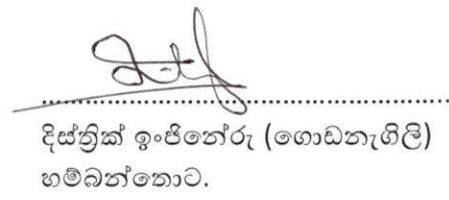 දිස්ත්‍රික් ඉංජිනේරු (ගොඩනැගිලි)
හම්බන්තොට.